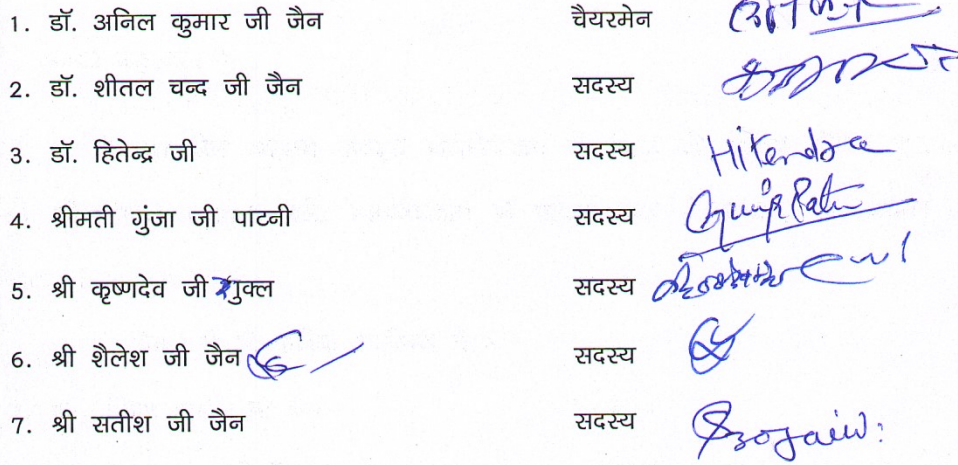 1. डॉ. अनिल कुमार जी जैन चैयरमेन
2. डॉ. शीतल चन्द जी जैन सदस्य
3. डॉ. हितेन्द्र जी सदस्य Hitendra
4. श्रीमती गुंजा जी पाटनी सदस्य
5. श्री कृष्णदेव जी शुक्ल सदस्य
6. श्री शैलेश जी जैन सदस्य
7. श्री सतीश जी जैन सदस्य